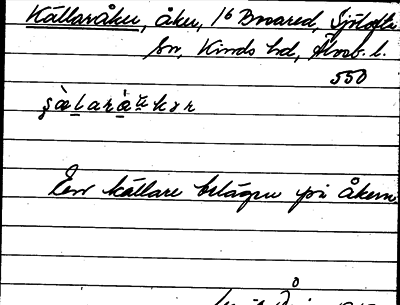 Källaråker, åker, 1⁶ Bosared, Sjötofta
sn, Kinds hd, Älvsb. l.
550
En källare belägen på åkern